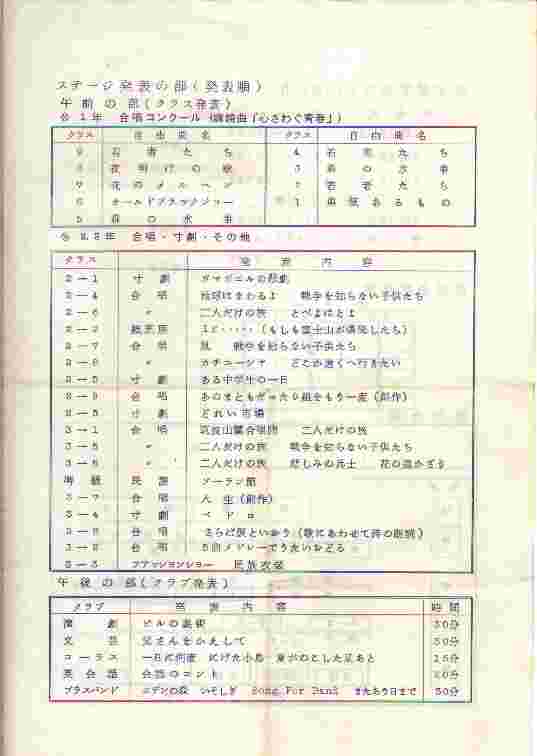 ステージ発表の部(発表順)
午前の部(クラス発表)
1年 合唱コンクール (課題曲「心さわぐ青春」)
クラス 自由曲名 クラス 自由曲名
9 若者たち 4 若者たち
8 夜明けの歌 3 森の水車
7 花のメルヘン 2 若者たち
6 オールドブラックジョー 1 勇気あるもの
5 森の水車
2.3年 合唱・寸劇・その他
クラス 発表内容
2−1 寸劇 の悲劇
2−4 合唱 地球はまわるよ 戦争を知らない子供たち
〃 二人だけの旅 とべよはとよ
(もしも富士山が爆発したら)
2−7 合唱 風 戦争を知らない子供たち
〃 カチューシャ どこか遠くへ行きたい
寸劇 ある中学生の一日
合唱 (創作)
寸劇 どれい市場
3−1 合唱 筑波山麓合唱団 二人だけの旅
〃 二人だけの旅 戦争を知らない子供たち
〃 二人だけの旅 悲しみの兵士 花の首かざり
特級 民謡 ソーラン節
3−7 合唱 人生(創作)
3−4 寸劇 ペドロ
合唱 さらば涙といおう(歌にあわせて詩の朗読)
合唱 5曲メドレーでうたいおどる
ファッションショー 民族衣装
午後の部(クラブ発表)
クラブ 発表内容 時間
演劇 ビルの裏街 50分
文芸 父さんをかえして 50分
コーラス 一日に何度 にげた小鳥 15分
英会話 会話のコント 20分
ブラスバンド エデンの東 いそしぎ Song For Band またあう日まで 50分